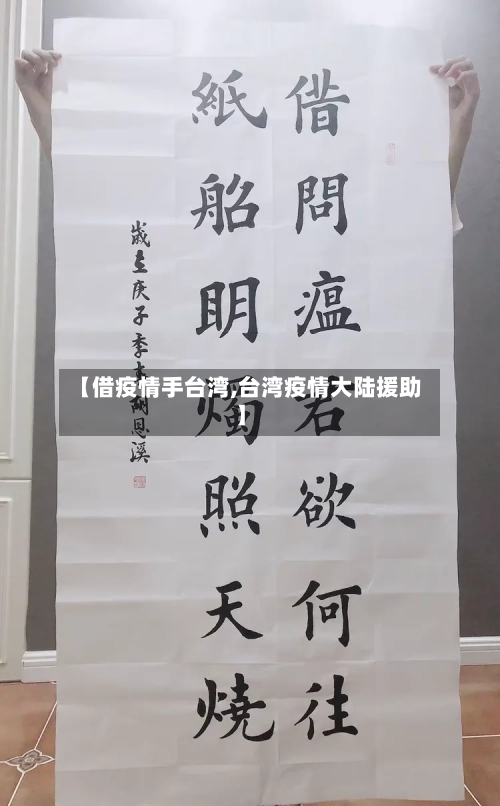 借問瘟君欲何往
紙船明燭照天燒
歲在庚子季春胡恩溪
【借疫情手台湾,台湾疫情大陆援助
】